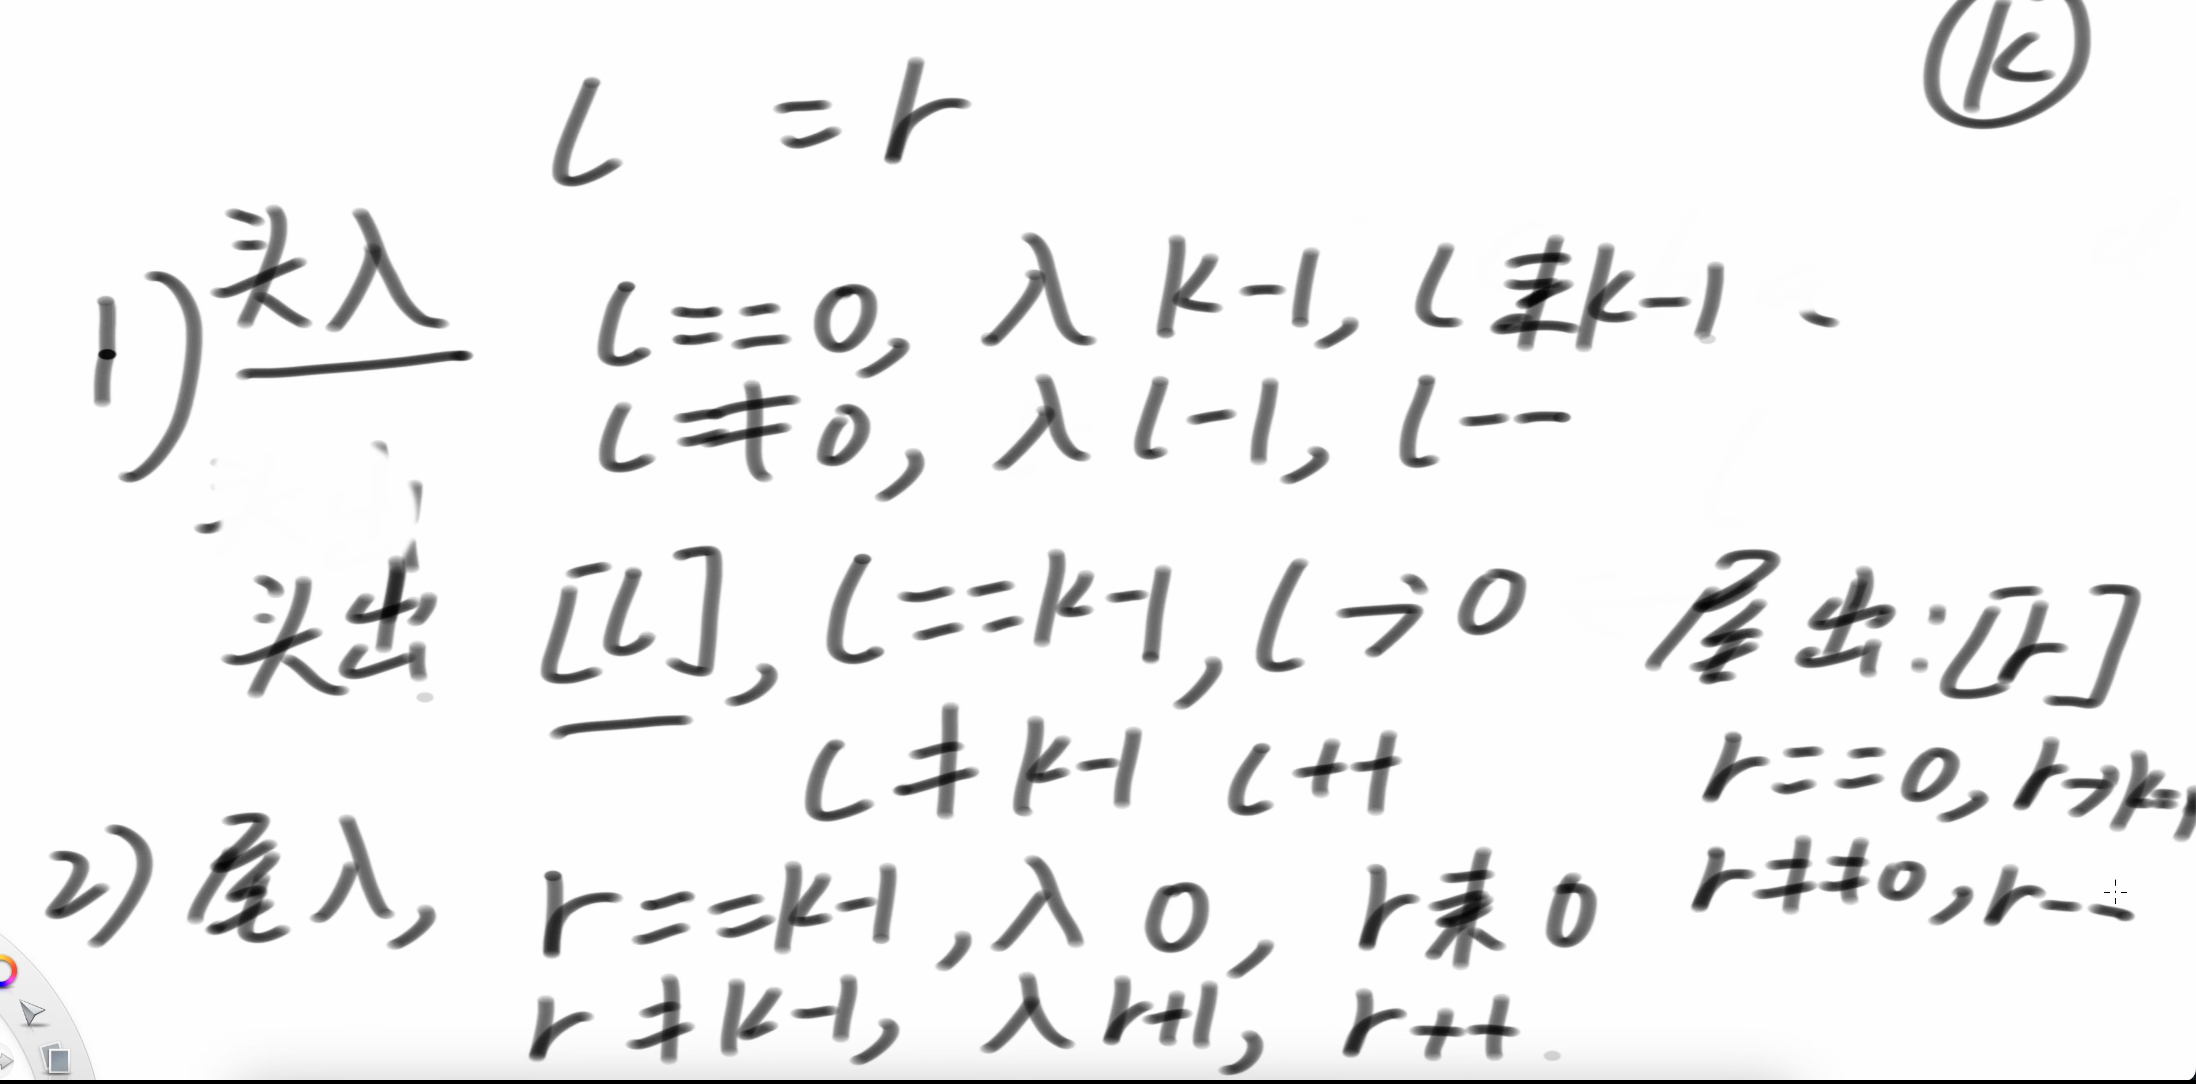 k
l = r
1) 头入 l==0, 入 k-1, l 来k-1
l≠0, 入 l-1, l--
头出 [l], l==k-1, l→0
l≠k-1 l++
尾出:[r]
r==0, r→k-1
r≠=0, r--
2) 尾入, r==k-1, 入 0, r来 0
r≠k-1, 入 r+1, r++